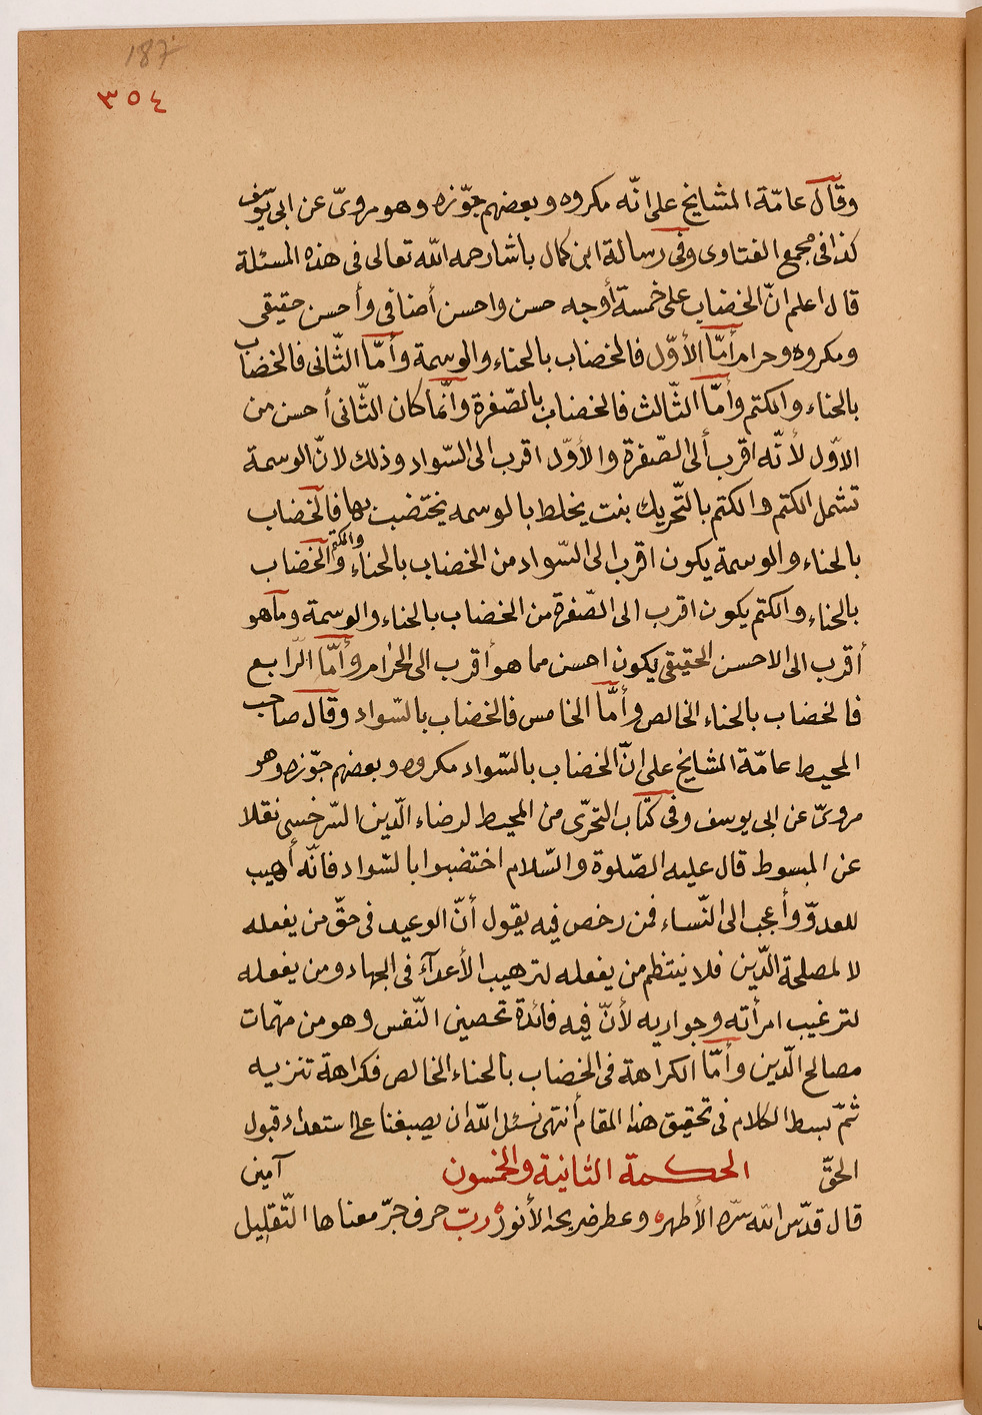 187
٣٥٤
وقال عامّة المشايخ على انّه مكروه وبعضهم جوّزه وهو مروىّ عن ابى يوسف
كذا فى مجمع الفتاوى وفى رسالة ابن كمال باشا رحمه الله تعالى فى هذه المسئلة
قال اعلم انّ الخضاب على خمسة أوجه حسن واحسن أضافى وأحسن حقيقى
ومكروه وحرام أمّا الأوّل فالخضاب بالحناء والوسمة وأمّا الثّانى فالخضاب
بالحناء والكتم وأمّا الثّالث فالخضاب بالصّفرة وانّما كان الثّانى أحسن من
الاوّل لأنّه اقرب ألى الصّفرة والأوّل اقرب الى السّواد وذلك لانّ الوسمة
تشمل الكتم والكتم بالتّحريك بنت يخلط بالوسمه يختضب بها فالخضاب
بالحناء والوسمة يكون اقرب الى السّواد من الخضاب بالحناء والكتم والخضاب
بالحناء والكتم يكون اقرب الى الصّفرة من الخضاب بالحناء والوسمة وما هو
أقرب الى الاحسن الحقيقى يكون احسن مما هو أقرب الى الحرام وأمّا الرّابع
فالخضاب بالحناء الخالص وأمّا الخامس فالخضاب بالسّواد وقال صاحب
المحيط عامّة المشايخ على انّ الخضاب بالسّواد مكروه وبعضهم جوّزه وهو
مروىّ عن ابى يوسف وفى كتاب التحرّى من المحيط لرضاء الّدين السّرخسى نقلا
عن المبسوط قال عليه الصّلوة والسّلام اختضبوا بالسّواد فانّه أهيب
للعدوّ وأعجب الى النّساء فمن رخص فيه يقول أنّ الوعيد فى حقّ من يفعله
لا لمصلحة الدّين فلا ينتظم من يفعله لترهيب الأعدآء فى الجهاد ومن يفعله
لترغيب امرأته وجواريه لأنّ فيه فائدة تحصين النّفس وهو من مهمّات
مصالح الّدين وأمّا الكراهة فى الخضاب بالحناء الخالص فكراهة تنزيه
ثمّ بسط الكلام فى تحقيق هذا المقام أنتهى نسئل الله ان يصبغنا على استعداد قبول
الحقّ الحكمة الثانية والخمسون آمين
قال قدّس الله سرّه الأطهر وعطر ضريحه الأنور ربّ حرف جرّ معناها التّقليل